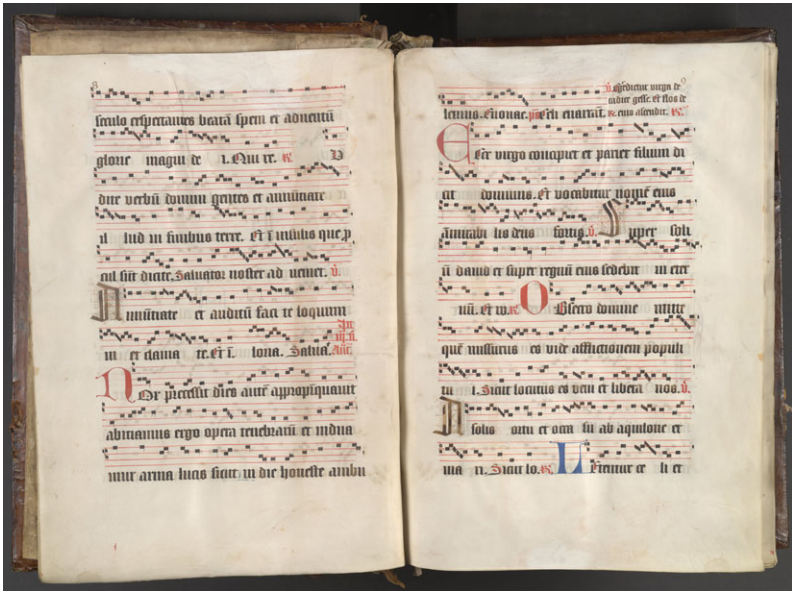 seculo exspectantes beatā spem et aduentū
glorie magni de i. Qui re. R. V
dite verbū domini gentes et annūtiate
il lud in finibus terre. Et ī insulis que p
cul sūt dicite. Saluator noster ad ueniet. v.
A nnūtiate et auditū faci te loquimi
ni et clama te. Et ī. iona. Saluat.
Nox precessit dies autē appropīquauit
abiciamus ergo opera tenebrarū et indua
mur arma lucis sicut in die honeste ambu
v. egredietur virga de
radice gesse. Et flos de
lemus. Celi enarrāt. R. eius ascendit. R.
Ecce virgo concipiet et pariet filium di
cit dominus. Et vocabitur nomē eius
āmirabi lis deus fortis. v. Super soli
ū dauid et super regnū eius sedebit in eter
nū. Et vo. R. Obsecro domine mitte
quē missurus es vide afflictionem populi
tu i. Sicut locutus es veni et libera nos. v.
A solis ortu et occa su ab aquilone et
ma ri. Sicut lo. R. Letentur ce li et